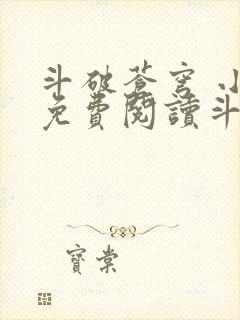 斗破蒼穹小
免費閱讀斗
寶棠